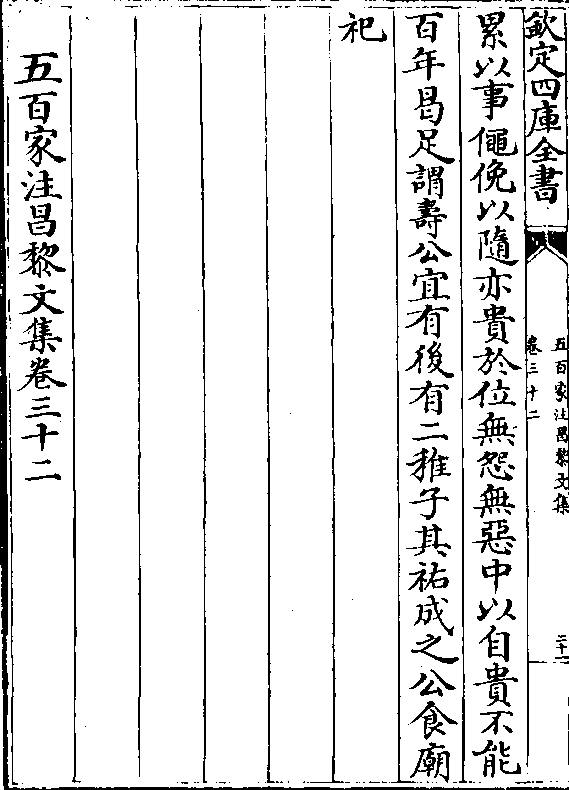 欽定四庫全書
五百家注昌黎文集
卷三十二
累以事僶俛以隨亦貴於位無怨無惡中以自貴不能
百年曷足謂壽公宜有後有二稚子其祐成之公食廟
祀
五百家注昌黎文集卷三十二